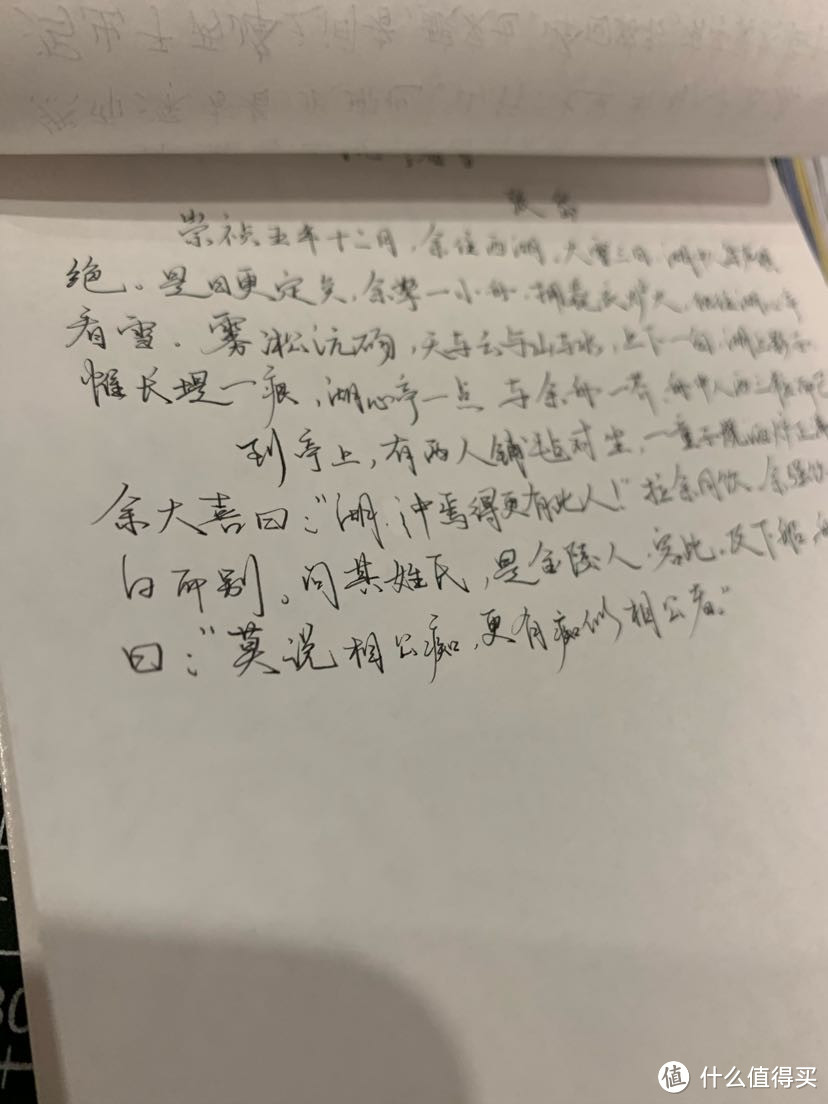 张岱
崇祯五年十二月，余住西湖，大雪三日，湖中
绝。是日更定矣，余拏一小舟，拥毳衣炉火，独往湖心亭
看雪。雾凇沆砀，天与云与山与水，上下一白，湖上影子
惟长堤一痕，湖心亭一点 与余舟一芥，舟中人两三粒
到亭上，有两人铺毡对坐，一童子烧酒炉正
余大喜曰：“湖中焉得更有此人！”拉余同饮。余强饮
白而别。问其姓氏，是金陵人，客此，及下船
曰：“莫说相公痴，更有痴似相公者。”
值 什么值得买